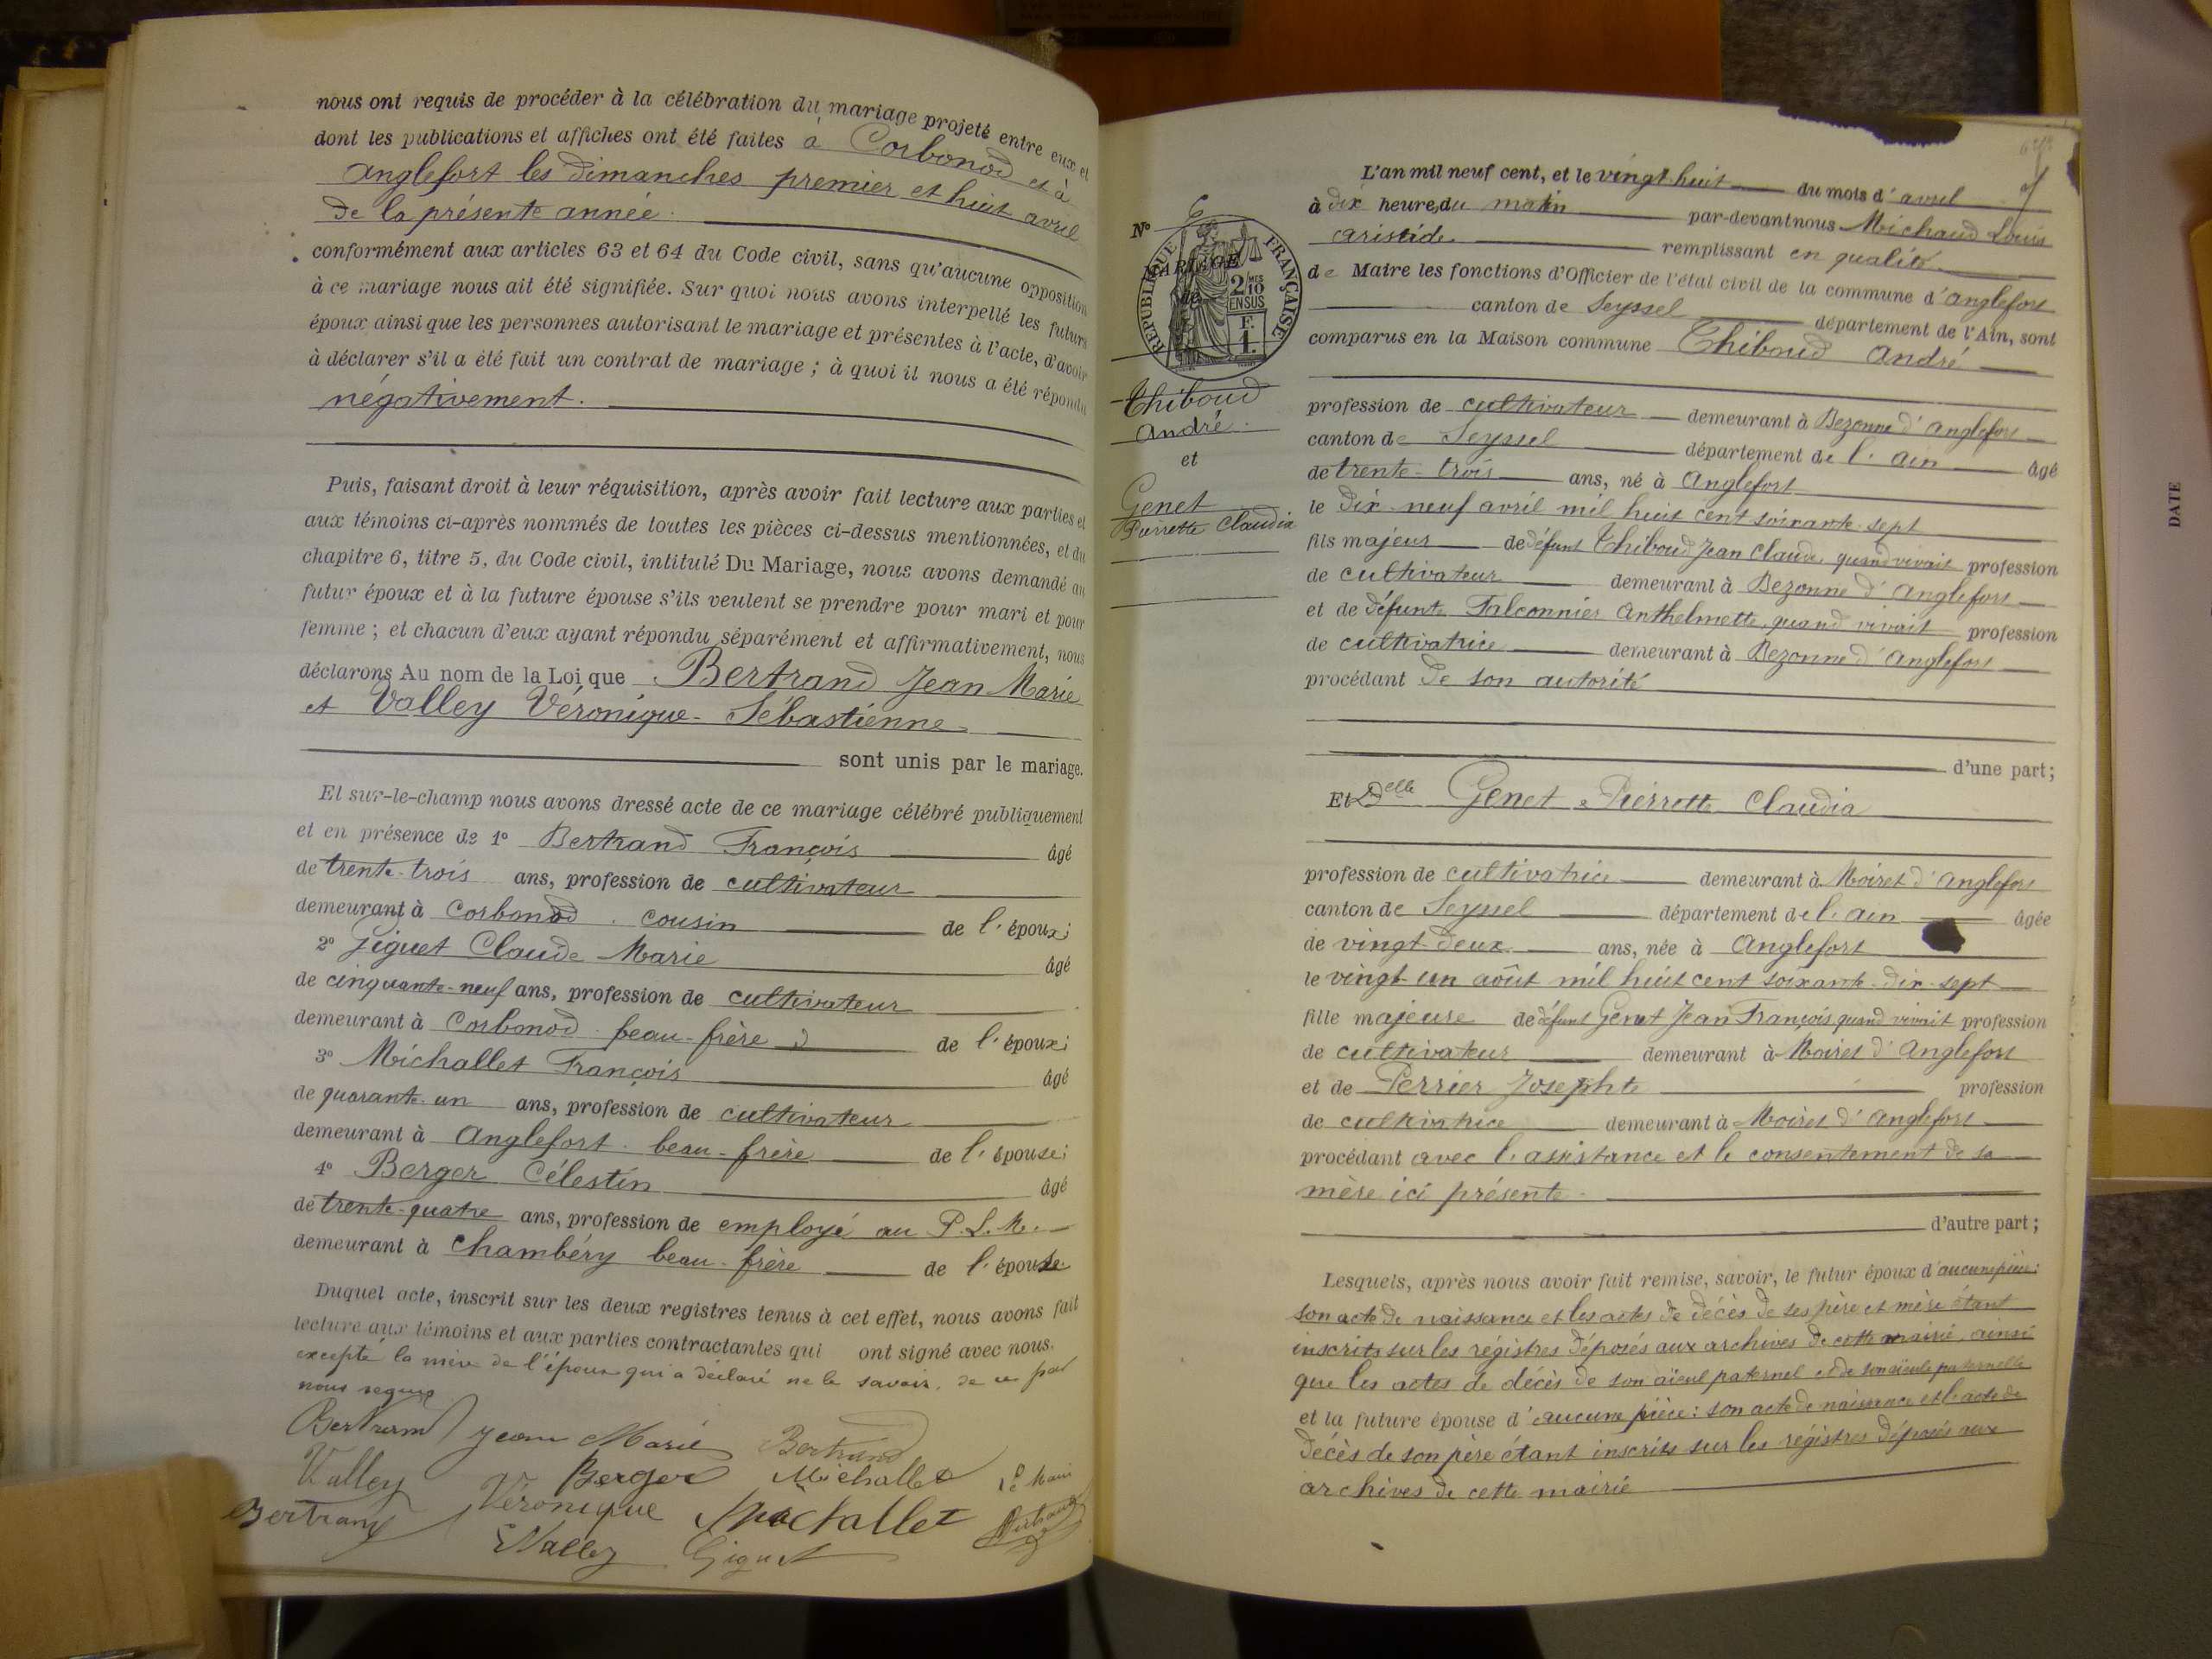 nous ont requis de procéder à la célébration du mariage projeté entre eux et
dont les publications et affiches ont été faites à Corbonod et à
Anglefort les dimanches premier et huit avril
de la présente année.
conformément aux articles 63 et 64 du Code civil, sans qu'aucune opposition
à ce mariage nous ait été signifiée. Sur quoi nous avons interpellé les futurs
époux ainsi que les personnes autorisant le mariage et présentes à l'acte, d'avoir
à déclarer s'il a été fait un contrat de mariage ; à quoi il nous a été répondu
négativement.
Puis, faisant droit à leur réquisition, après avoir fait lecture aux parties et
aux témoins ci-après nommés de toutes les pièces ci-dessus mentionnées, et du
chapitre 6, titre 5, du Code civil, intitulé Du Mariage, nous avons demandé au
futur époux et à la future épouse s'ils veulent se prendre pour mari et pour
femme ; et chacun d'eux ayant répondu séparément et affirmativement, nous
déclarons Au nom de la Loi que Bertrand Jean Marie
et Valley Véronique Sébastienne
sont unis par le mariage.
Et sur-le-champ nous avons dressé acte de ce mariage célébré publiquement
et en présence de 1° Bertrand François âgé
de trente-trois ans, profession de cultivateur
demeurant à Corbonod. cousin de l'époux;
2° Giguet Claude Marie âgé
de cinquante-neuf ans, profession de cultivateur
demeurant à Corbonod. beau-frère de l'époux;
3° Michallet François âgé
de quarante-un ans, profession de cultivateur
demeurant à Anglefort. beau-frère de l'épouse;
4° Berger Célestin âgé
de trente-quatre ans, profession de employé au P. L. M.
demeurant à Chambéry beau-frère de l'épouse.
Duquel acte, inscrit sur les deux registres tenus à cet effet, nous avons fait
lecture aux témoins et aux parties contractantes qui ont signé avec nous.
excepté la mère de l'époux qui a déclaré ne le savoir, de ce par
nous requis
Bertrand Jean Marie Bertrand
Valley Berger Michallet Le Maire
Bertrand Véronique Michallet
Valley Giguet
L'an mil neuf cent, et le vingt-huit du mois d'avril
à dix heures du matin par-devant nous Michaud Louis
Aristide remplissant en qualité
de Maire les fonctions d'Officier de l'état civil de la commune d'Anglefort
canton de Seyssel département de l'Ain, sont
comparus en la Maison commune Thiboud André
N° 6
RÉPUBLIQUE FRANÇAISE
MARIAGE
de
2/10 MES
EN SUS
F.
1.
Thiboud
André.
et
Genet
Pierrette Claudia
profession de cultivateur demeurant à Bezonne d'Anglefort
canton de Seyssel département de l'Ain âgé
de trente-trois ans, né à Anglefort
le dix-neuf avril mil huit cent soixante-sept
fils majeur de défunt Thiboud Jean Claude, quand vivait profession
de cultivateur demeurant à Bezonne d'Anglefort
et de défunte Falconnier Anthelmette, quand vivait profession
de cultivatrice demeurant à Bezonne d'Anglefort
procédant de son autorité
d'une part;
Et Delle Genet Pierrette Claudia
profession de cultivatrice demeurant à Moiret d'Anglefort
canton de Seyssel département de l'Ain âgée
de vingt-deux ans, née à Anglefort
le vingt-un août mil huit cent soixante-dix-sept
fille majeure de défunt Genet Jean François quand vivait profession
de cultivateur demeurant à Moiret d'Anglefort
et de Perrier Josephte profession
de cultivatrice demeurant à Moiret d'Anglefort
procédant avec l'assistance et le consentement de sa
mère ici présente.
d'autre part;
Lesquels, après nous avoir fait remise, savoir, le futur époux d'aucune pièce:
son acte de naissance et les actes de décès de ses père et mère étant
inscrits sur les régistres déposés aux archives de cette mairie, ainsi
que les actes de décès de son aïeul paternel et de son aïeule paternelle
et la future épouse d'aucune pièce: son acte de naissance et l'acte de
décès de son père étant inscrits sur les régistres déposés aux
archives de cette mairie
DATE